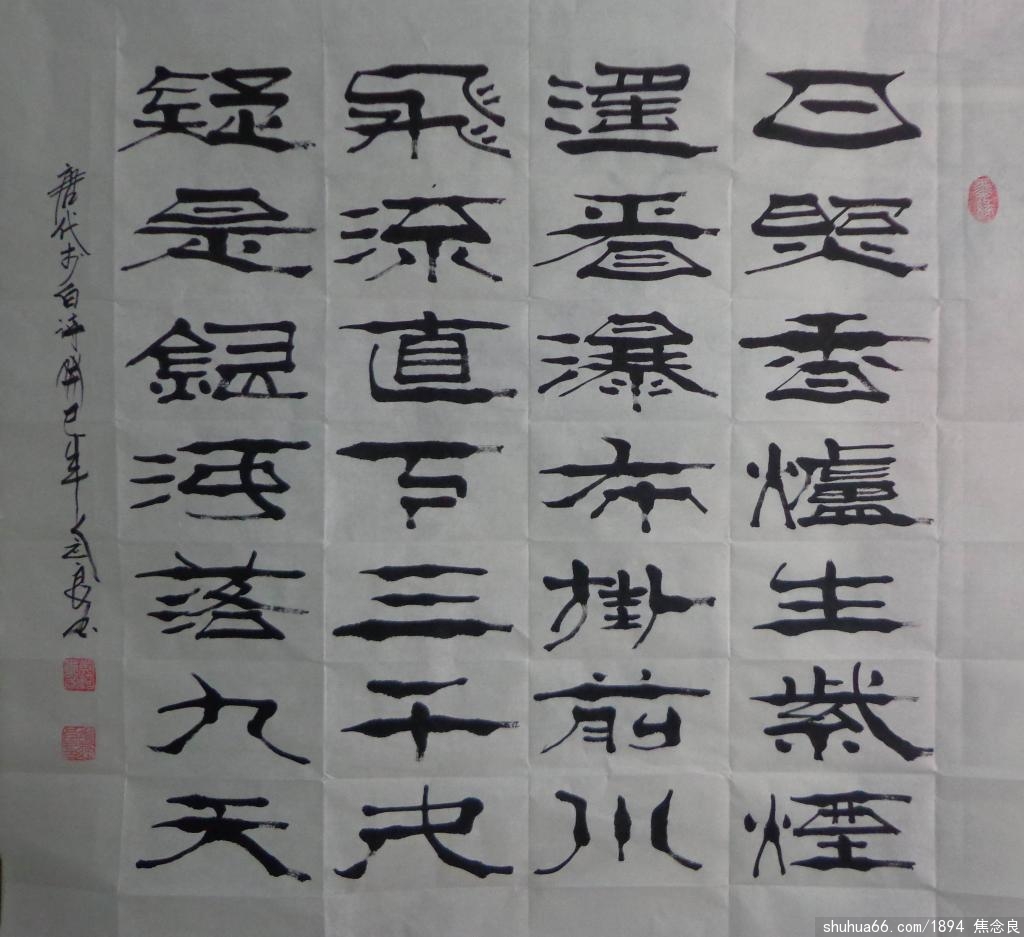 日照香爐生紫煙
遙看瀑布掛前川
飛流直下三千尺
疑是銀河落九天
唐代李白诗癸巳年念良书
shuhua66.com/1894 焦念良